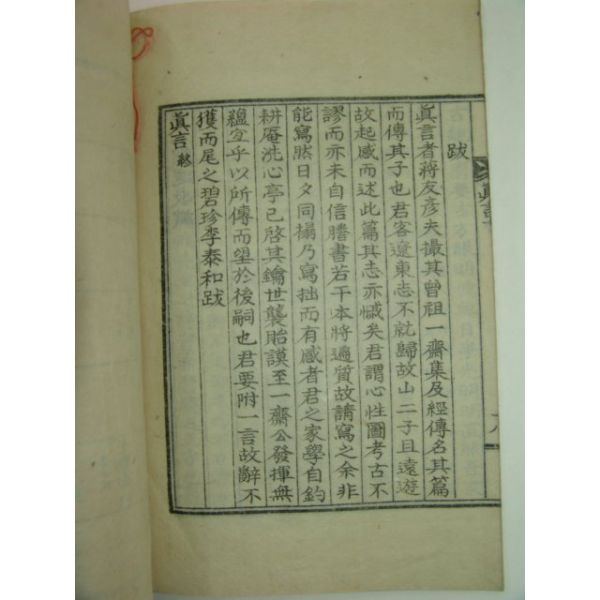 跋
眞言者蔣友彦夫撮其曾祖一齋集及經傳名其篇
而傳其子也君客遼東志不就歸故山二子且遠遊
故起感而述此篇其志亦慽矣君謂心性圖考古不
謬而亦未自信謄書若干本將遍質故請寫之余非
能寫然日夕同榻乃寫拙而有感者君之家學自鈞
耕庵洗心亭已啓其鑰世襲貽謨至一齋公發揮無
蘊宜乎以所傳而望於後嗣也君要附一言故辭不
獲而尾之碧珍李泰和跋
眞言終
眞言